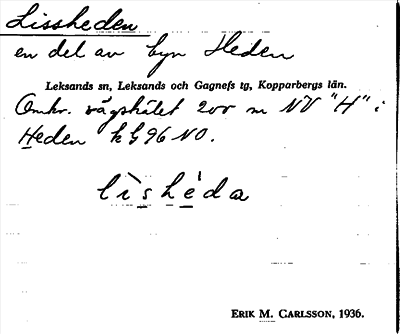 Lissheden
en del av byn Heden
Leksands sn, Leksands och Gagnefs tg, Kopparbergs län.
Omkr. vägskälet 200 m NV "H" i
Heden k G 96 NO.
lìshèda
ERIK M. CARLSSON, 1936.